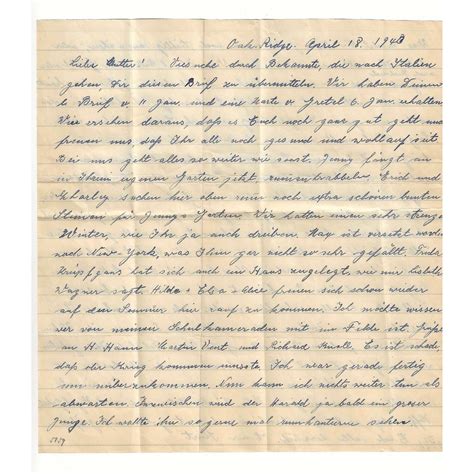 Oak Ridge. April 18. 1940
Liebe Mutter! Versuche durch Bekannte, die nach Italien
gehen, Dir diesen Brief zu übermitteln. Wir haben Deinen
Brief v 11 Jan. und eine Karte v Gretel 6 Jan. erhalten
Wir ersehen daraus, dass es Euch noch ganz gut geht und
freuen uns dass Ihr alle noch gesund und wohlauf seit
Bei uns geht alles so weiter wie sonst. Jenny fängt an
in Ihrem Garten jetzt, Erich und
Charley suchen hier oben nur noch extra schönen bunten
Steinen für Jennys Garten. Wir hatten einen sehr strengen
Winter, wie Ihr ja auch drüben. Max ist versetzt worden
nach New-York, was Ihm gar nicht so sehr gefällt.
hat sich auch ein Haus zugelegt, wie mir
Wagner sagt. Hilda + Elsa + Alice freuen sich schon wieder
auf den Sommer hier rauf zu kommen. Ich möchte wissen
wer von meinen Schulkameraden mit im Felde ist, grüße
an H. Hann Martin Vent und Richard Knoll. Es ist schade
dass der Krieg kommen musste. Ich war gerade fertig
um rüberzukommen. Nun kann ich nicht weiter tun als
abwarten. Inzwischen wird der Harald ja bald ein grosser
Junge. Ich wollte ihn so gerne mal sehen.